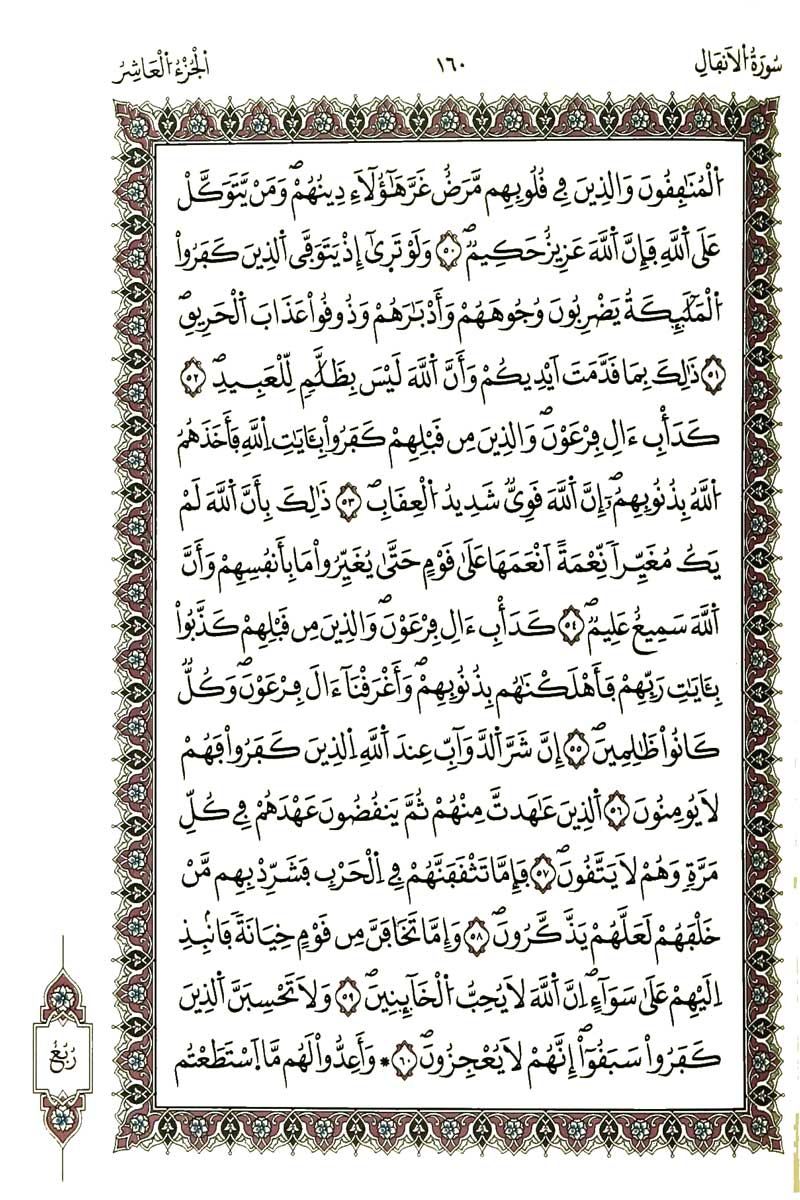 سُورَةُ الْأَنفَالِ
١٦٠
الْجُزْءُ الْعَاشِرُ
اَ۬لْمُنَٰفِقُونَ وَالذِينَ فِے قُلُوبِهِم مَّرَضٌ غَرَّ هَٰٓؤُلَآءِ دِينُهُمْۖ وَمَنْ يَّتَوَكَّلْ
عَلَى اَ۬للَّهِ فَإِنَّ اَ۬للَّهَ عَزِيزٌ حَكِيمٌۖ ٥٠ وَلَوْ تَر۪ىٰٓ إِذْ يَتَوَفَّى اَ۬لذِينَ كَفَرُواْ
اُ۬لْمَلَٰٓئِكَةُ يَضْرِبُونَ وُجُوهَهُمْ وَأَدْبَٰرَهُمْ وَذُوقُواْ عَذَابَ اَ۬لْحَرِيقِۖ
٥١ ذَٰلِكَ بِمَا قَدَّمَتَ اَيْدِيكُمْ وَأَنَّ اَ۬للَّهَ لَيْسَ بِظَلَّٰمٖ لِّلْعَبِيدِۖ ٥٢
كَدَأْبِ ءَالِ فِرْعَوْنَۖ وَالذِينَ مِن قَبْلِهِمْ كَفَرُواْ بِـَٔايَٰتِ اِ۬للَّهِ فَأَخَذَهُمُ
اُ۬للَّهُ بِذُنُوبِهِمُۥٓۖ إِنَّ اَ۬للَّهَ قَوِيّٞ شَدِيدُ اُ۬لْعِقَابِۖ ٥٣ ذَٰلِكَ بِأَنَّ اَ۬للَّهَ لَمْ
يَكُ مُغَيِّراٗ نِّعْمَةً اَنْعَمَهَا عَلَىٰ قَوْمٍ حَتَّىٰ يُغَيِّرُواْ مَا بِأَنفُسِهِمْ وَأَنَّ
اَ۬للَّهَ سَمِيعٌ عَلِيمٞۖ ٥٤ كَدَأْبِ ءَالِ فِرْعَوْنَۖ وَالذِينَ مِن قَبْلِهِمْ كَذَّبُواْ
بِـَٔايَٰتِ رَبِّهِمْ فَأَهْلَكْنَٰهُم بِذُنُوبِهِمْۖ وَأَغْرَقْنَآ ءَالَ فِرْعَوْنَۖ وَكُلّٞ
كَانُواْ ظَٰلِمِينَۖ ٥٥ إِنَّ شَرَّ اَ۬لدَّوَآبِّ عِندَ اَ۬للَّهِ اِ۬لذِينَ كَفَرُواْ فَهُمْ
لَا يُومِنُونَ ٥٦ اَ۬لذِينَ عَٰهَدتَّ مِنْهُمْ ثُمَّ يَنقُضُونَ عَهْدَهُمْ فِے كُلِّ
مَرَّةٖ وَهُمْ لَا يَتَّقُونَۖ ٥٧ فَإِمَّا تَثْقَفَنَّهُمْ فِے اِ۬لْحَرْبِ فَشَرِّدْ بِهِم مَّنْ
خَلْفَهُمْ لَعَلَّهُمْ يَذَّكَّرُونَۖ ٥٨ وَإِمَّا تَخَافَنَّ مِن قَوْمٍ خِيَانَةٗ فَانۢبِذِ
اِلَيْهِمْ عَلَىٰ سَوَآءٍۖ اِنَّ اَ۬للَّهَ لَا يُحِبُّ اُ۬لْخَآئِنِينَۖ ٥٩ وَلَا تَحْسِبَنَّ اَ۬لذِينَ
كَفَرُواْ سَبَقُوٓاْۖ إِنَّهُمْ لَا يُعْجِزُونَۖ ٦٠ * وَأَعِدُّواْ لَهُم مَّا اَ۪سْتَطَعْتُم
رُبُعُ